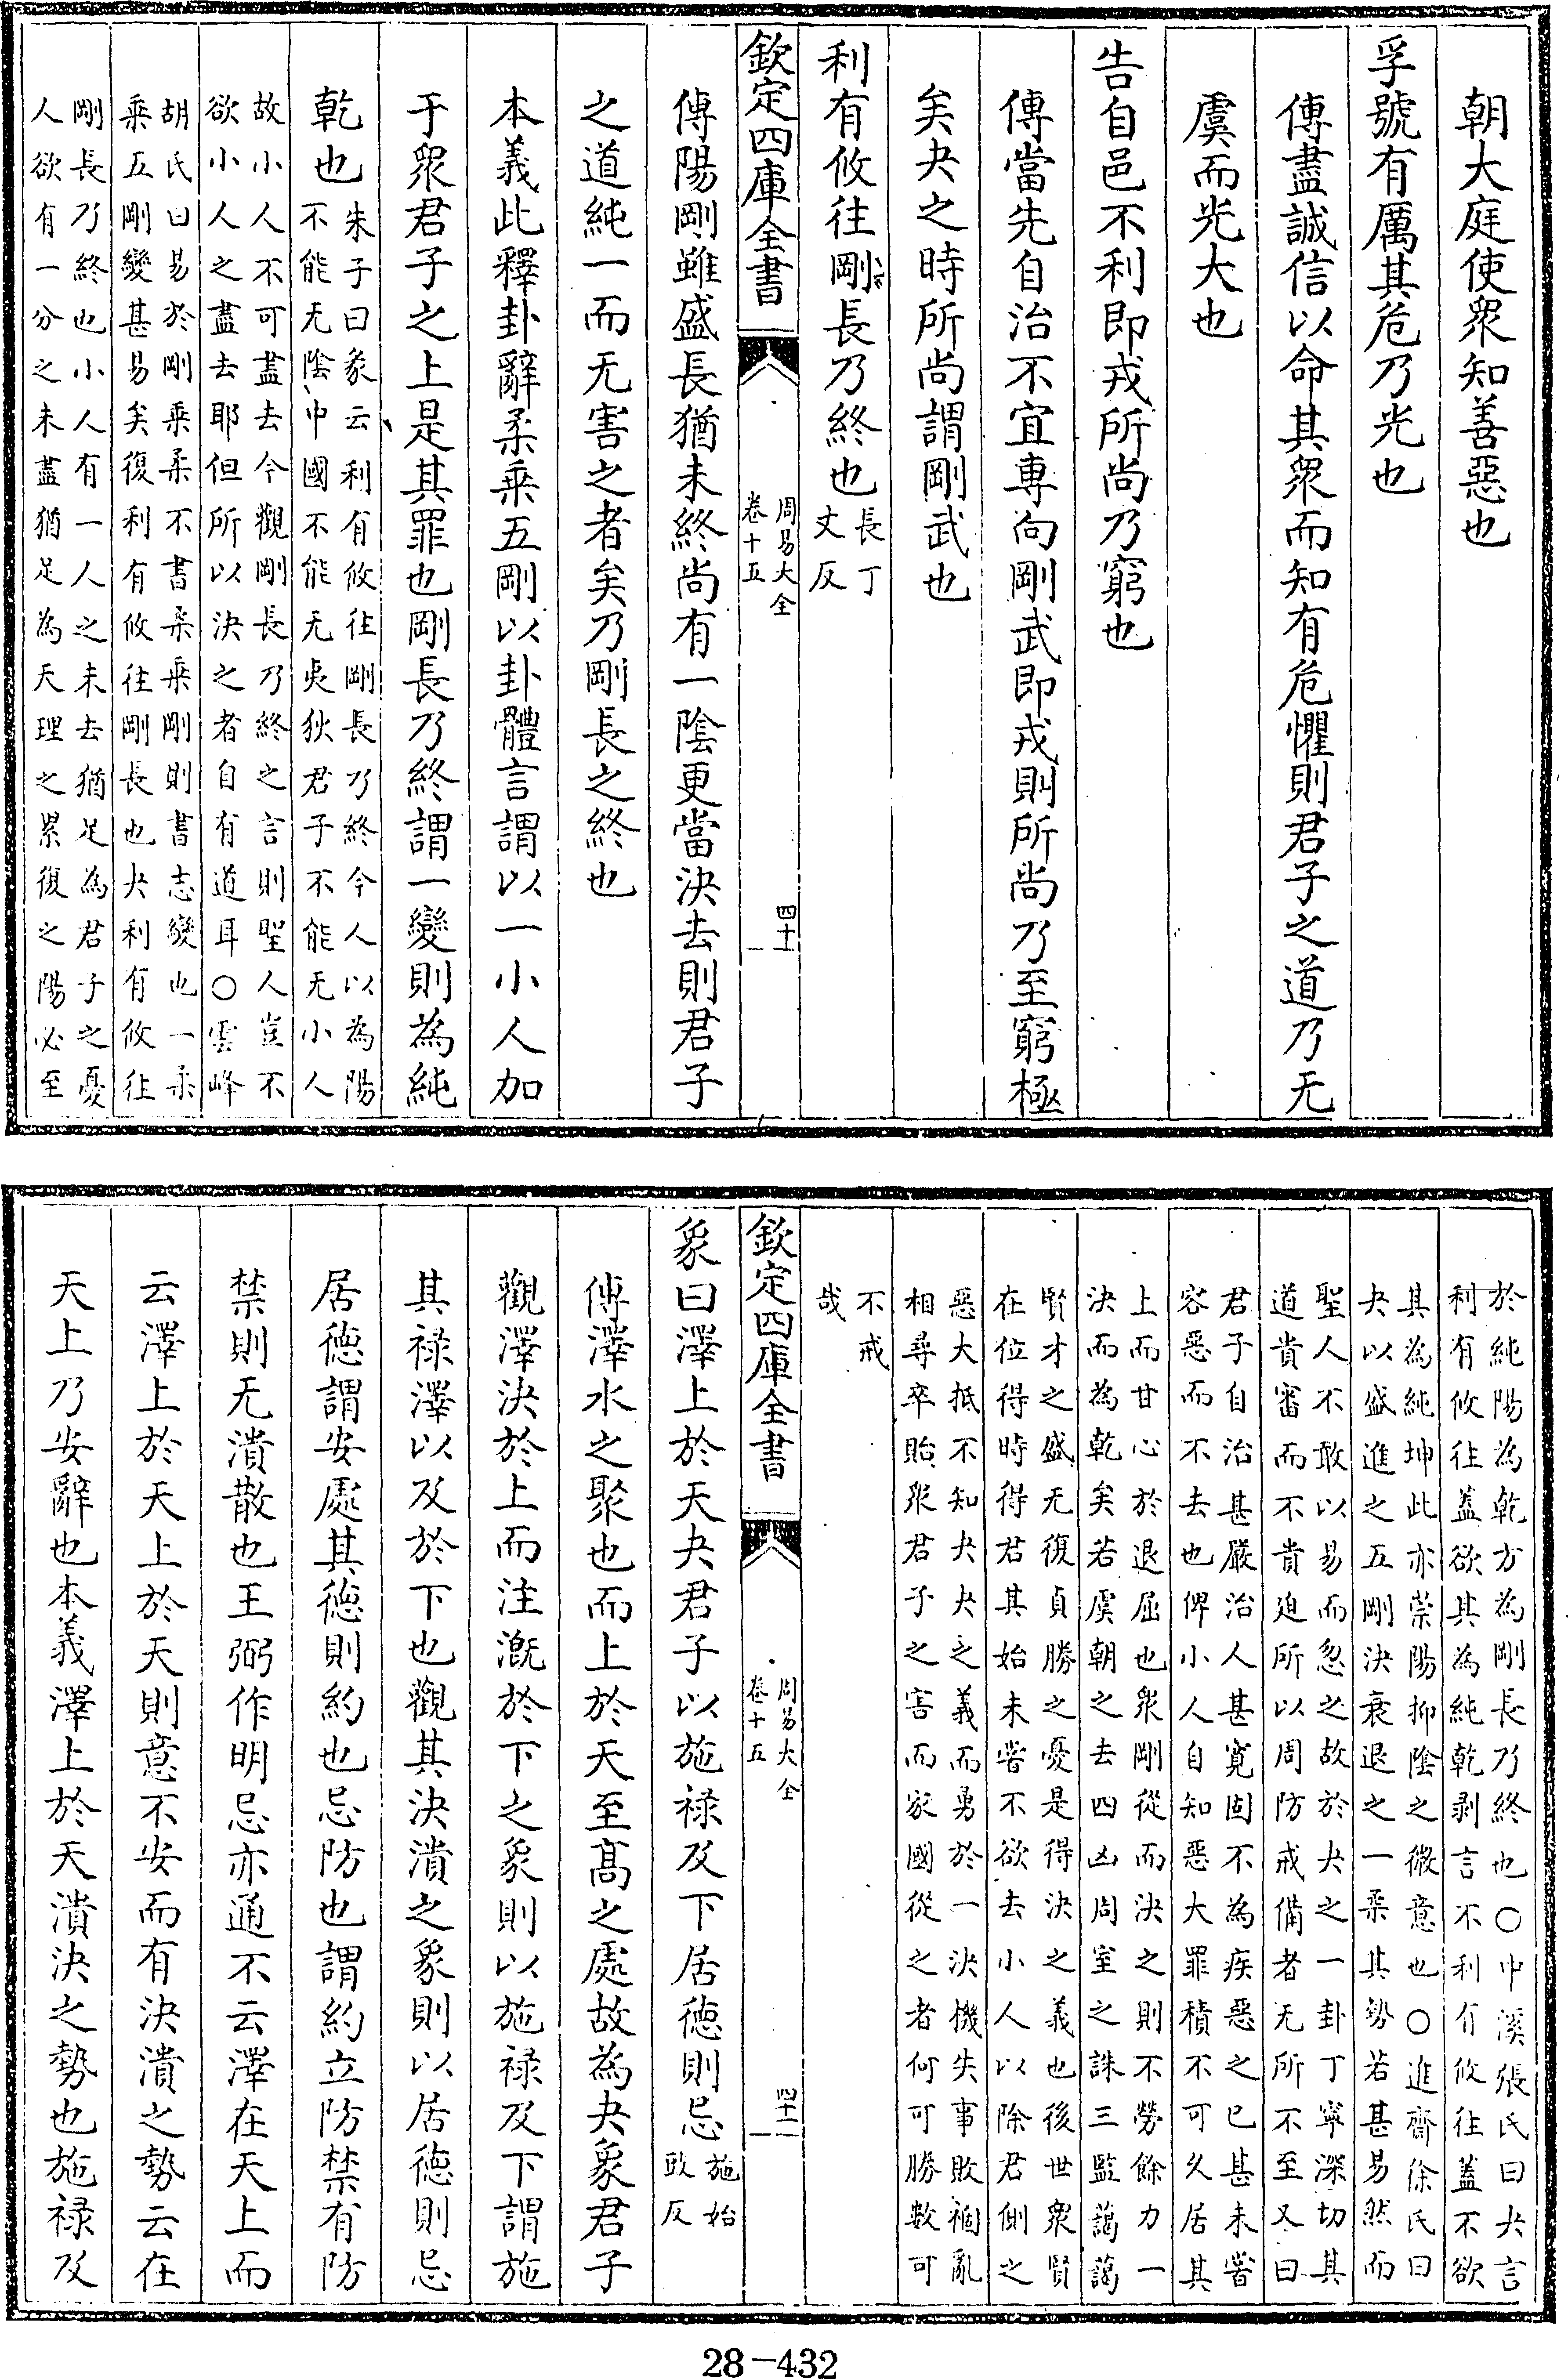 朝大庭使衆知善惡也
孚號有厲其危乃光也
傳盡誠信以命其衆而知有危懼則君子之道乃无
虞而光大也
告自邑不利即戎所尚乃窮也
傳當先自治不宜専向剛武即戎則所尚乃至窮極
矣夬之時所尚謂剛武也
利有攸往剛長乃終也長丁
丈反
欽定四庫全書
周易大全
卷十五
四十一
傳陽剛雖盛長猶未終尚有一陰更當決去則君子
之道純一而无害之者矣乃剛長之終也
本義此釋卦辭柔乗五剛以卦體言謂以一小人加
于衆君子之上是其罪也剛長乃終謂一變則為純
乾也朱子曰彖云利有攸往剛長乃終今人以為陽
不能无陰中國不能无夷狄君子不能无小人
故小人不可盡去今觀剛長乃終之言則聖人豈不
欲小人之盡去耶但所以決之者自有道耳○雲峰
胡氏曰易於剛乗柔不書柔乗剛則書志變也一柔
乗五剛變甚易矣復利有攸往剛長也夬利有攸往
剛長乃終也小人有一人之未去猶足為君子之憂
人欲有一分之未盡猶足為天理之累復之陽必至
於純陽為乾方為剛長乃終也○中溪張氏曰夬言
利有攸往蓋欲其為純乾剥言不利有攸往蓋不欲
其為純坤此亦崇陽抑陰之微意也○進齋徐氏曰
夬以盛進之五剛決衰退之一柔其勢若甚易然而
聖人不敢以易而忽之故於夬之一卦丁寧深切其
道貴審而不貴迫所以周防戒備者无所不至又曰
君子自治甚嚴治人甚寛固不為疾惡之已甚未嘗
容惡而不去也俾小人自知惡大罪積不可久居其
上而甘心於退屈也衆剛從而決之則不勞餘力一
決而為乾矣若虞朝之去四凶周室之誅三監藹藹
賢才之盛无復貞勝之憂是得決之義也後世衆賢
在位得時得君其始未嘗不欲去小人以除君側之
惡大抵不知夬夬之義而勇於一決機失事敗禍亂
相尋卒貽衆君子之害而家國從之者何可勝數可
不戒
哉
欽定四庫全書
周易大全
卷十五
四十二
象曰澤上於天夬君子以施禄及下居德則忌施始
豉反
傳澤水之聚也而上於天至髙之處故為夬象君子
觀澤決於上而注漑於下之象則以施禄及下謂施
其禄澤以及於下也觀其決潰之象則以居德則忌
居德謂安處其德則約也忌防也謂約立防禁有防
禁則无潰散也王弼作明忌亦通不云澤在天上而
云澤上於天上於天則意不安而有決潰之勢云在
天上乃安辭也本義澤上於天潰決之勢也施禄及
28-432